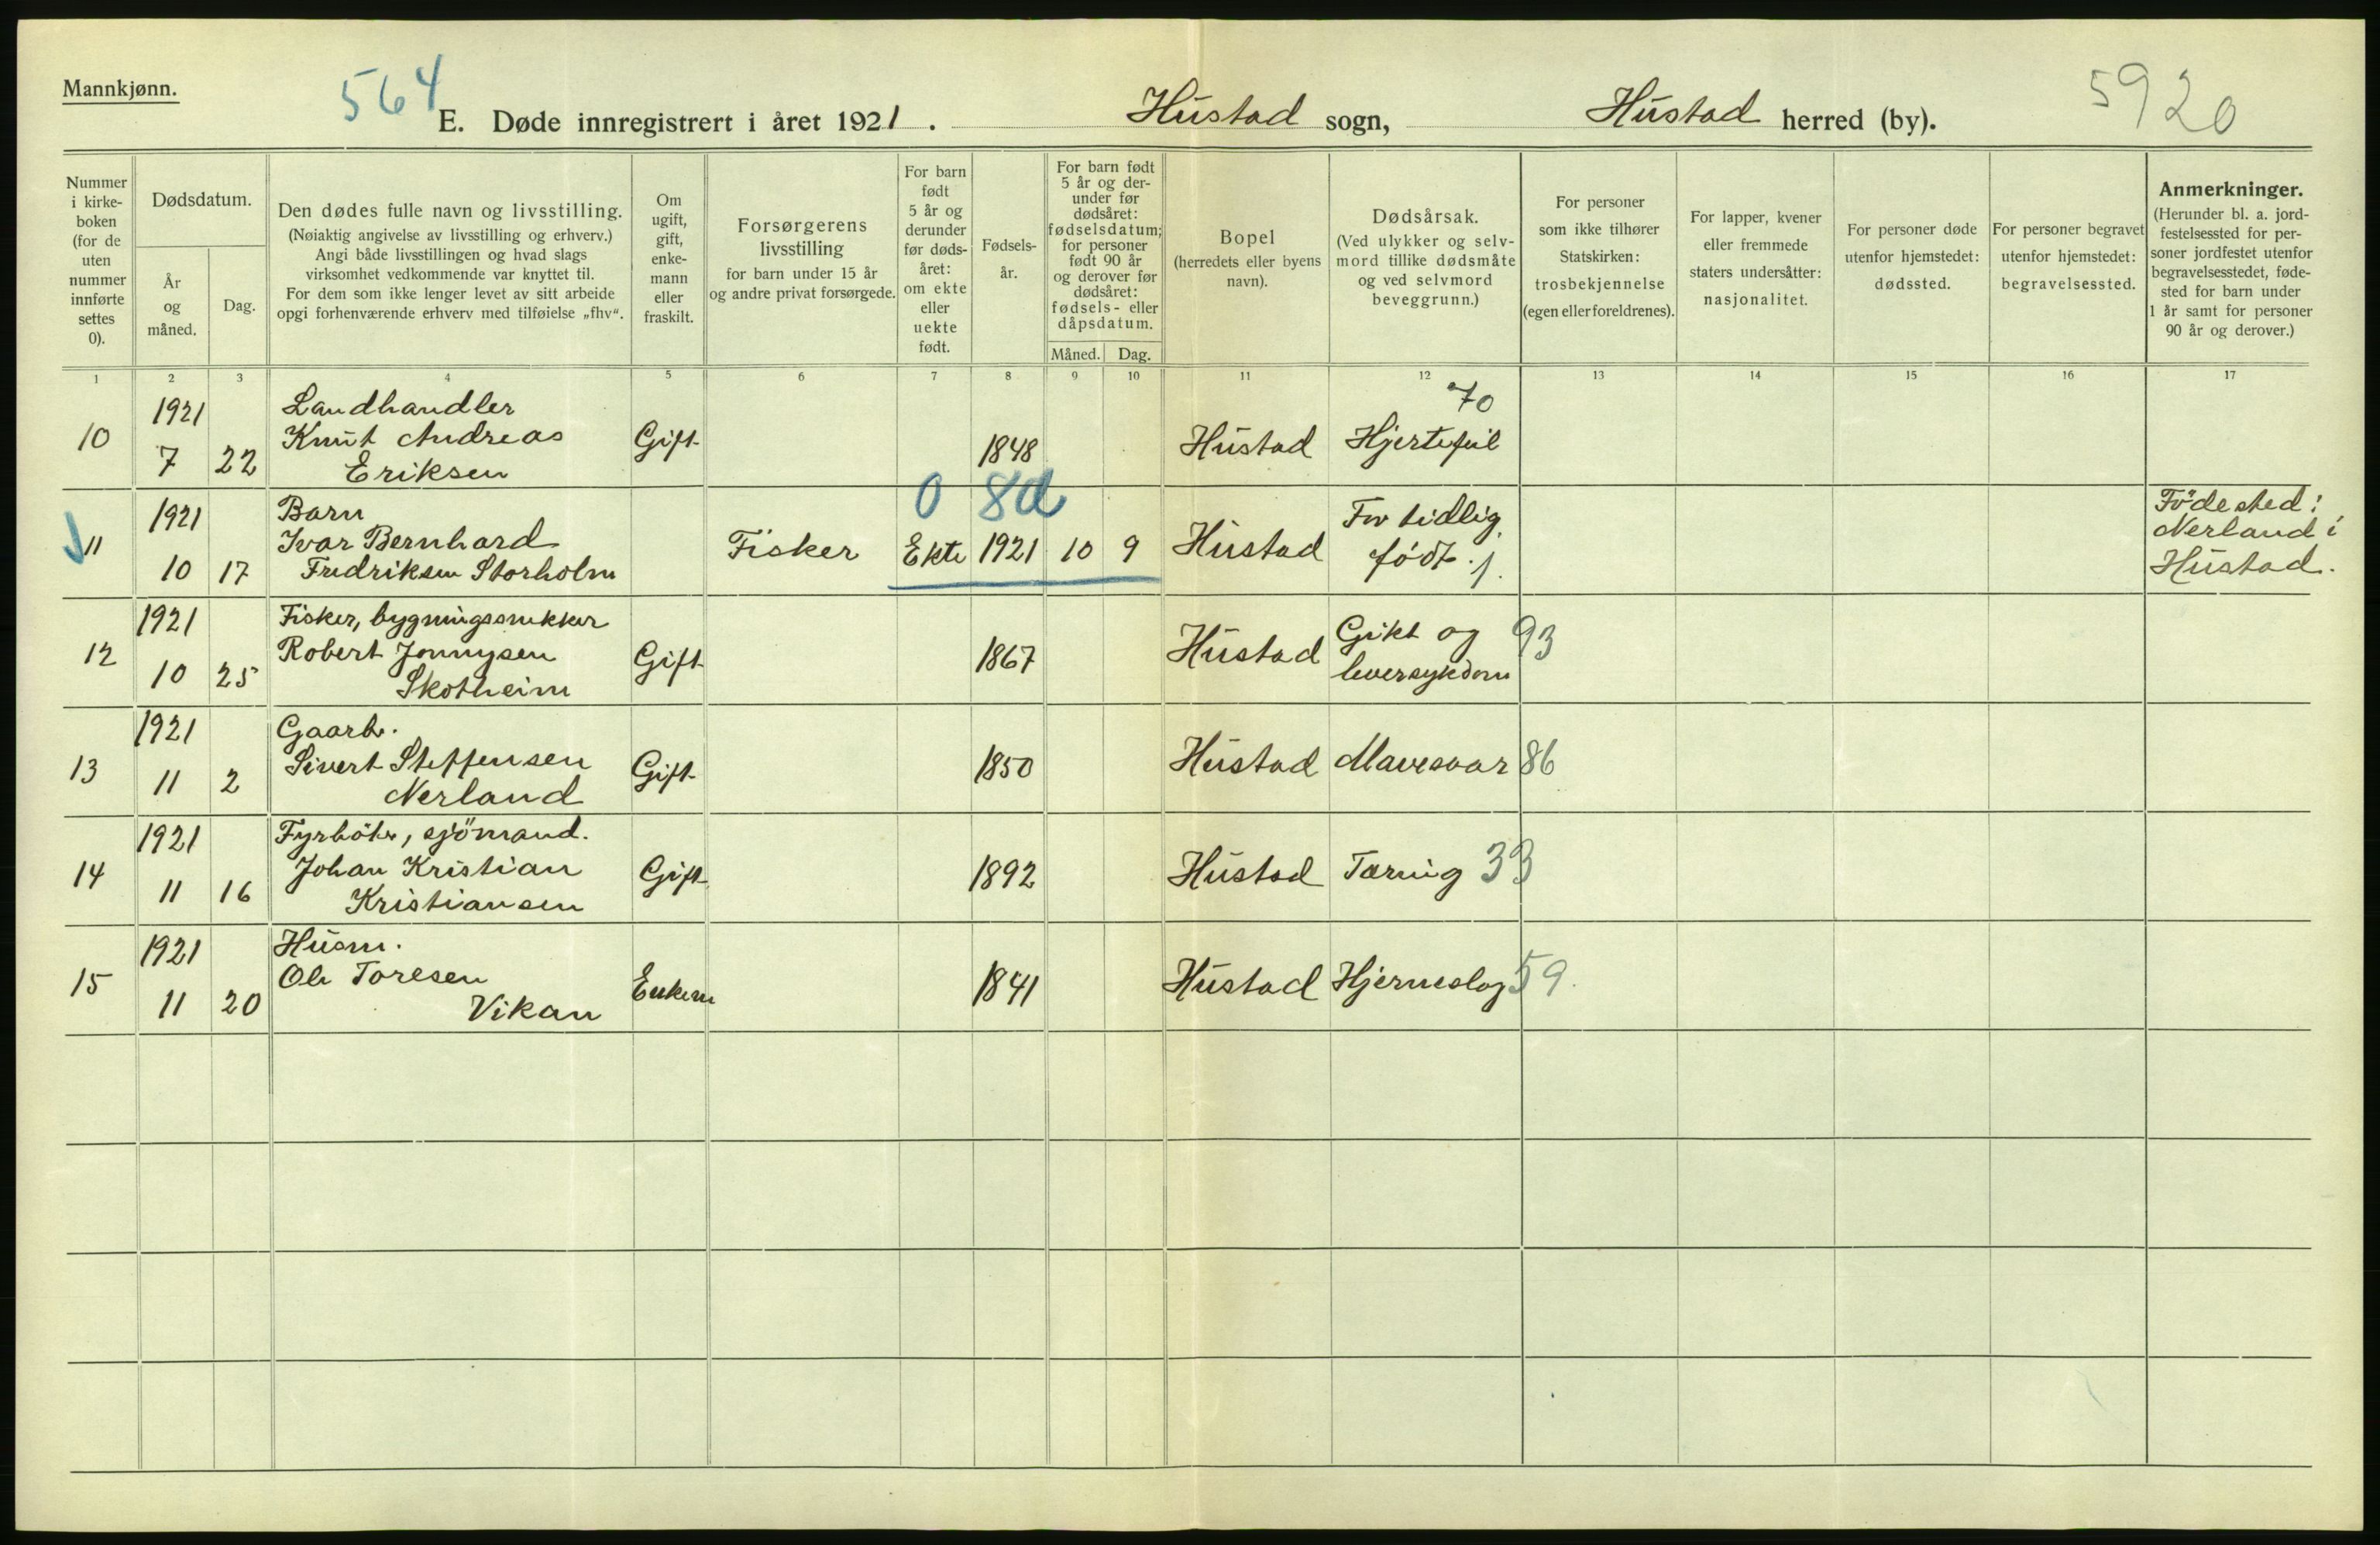 Mannkjønn.
564
E. Døde innregistrert i året 1921.
Hustad sogn,
Hustad herred (by).
5920
Nummer
i kirke-
boken
(for de
uten
nummer
innførte
settes
0).
Dødsdatum.
År
og
måned.
Dag.
Den dødes fulle navn og livsstilling.
(Nøiaktig angivelse av livsstilling og erhverv.)
Angi både livsstillingen og hvad slags
virksomhet vedkommende var knyttet til.
For dem som ikke lenger levet av sitt arbeide
opgi forhenværende erhverv med tilføielse „fhv“.
Om
ugift,
gift,
enke-
mann
eller
fraskilt.
Forsørgerens
livsstilling
for barn under 15 år
og andre privat forsørgede.
For barn
født
5 år og
derunder
før døds-
året:
om ekte
eller
uekte
født.
Fødsels-
år.
For barn født
5 år og der-
under før
dødsåret:
fødselsdatum;
for personer
født 90 år
og derover før
dødsåret:
fødsels- eller
dåpsdatum.
Måned. Dag.
Bopel
(herredets eller byens
navn).
Dødsårsak.
(Ved ulykker og selv-
mord tillike dødsmåte
og ved selvmord
beveggrunn.)
For personer
som ikke tilhører
Statskirken:
trosbekjennelse
(egen eller foreldrenes).
For lapper, kvener
eller fremmede
staters undersåtter:
nasjonalitet.
For personer døde
utenfor hjemstedet:
dødssted.
For personer begravet
utenfor hjemstedet:
begravelsessted.
Anmerkninger.
(Herunder bl. a. jord-
festelsessted for per-
soner jordfestet utenfor
begravelsesstedet, føde-
sted for barn under
1 år samt for personer
90 år og derover.)
1 2 3 4 5 6 7 8 9 10 11 12 13 14 15 16 17
1921 Landhandler 70
10 Knut Andreas Gift Hustad Hjertefeil
7 22 Eriksen 1848
0 8d
1921 Barn For tidlig Födested:
11 Ivar Bernhard Fisker Ekte 1921 10 9 Hustad født. 1. Nerland i
10 17 Fredriksen Storholm Hustad.
1921 Fisker, bygningssnekker Gikt og 93
12 Robert Jonnysen Gift 1867 Hustad leversykdom
10 25 Skotheim
1921 Gaarb.
13 Sivert Steffensen Gift 1850 Hustad Mavesaar 86
11 2 Nerland
1921 Fyrböter, sjömand.
14 Johan Kristian Gift 1892 Hustad Tæring 33
11 16 Kristiansen
1921 Husm.
15 Ole Toresen Enkem 1841 Hustad Hjerneslag 59.
11 20 Vikan